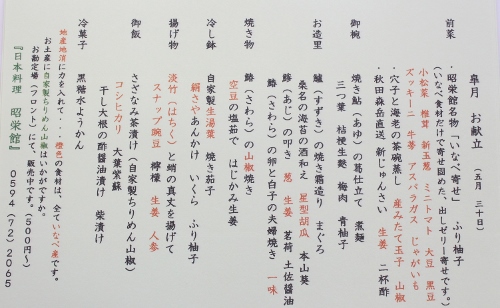 皐月　お献立　（五月　三十日）
前菜
・昭栄館名物「いなべ寄せ」　ふり柚子
（いなべ食材だけで寄せ固めた、出しゼリー寄せです。）
小松菜　椎茸　新玉葱　ミニトマト　大豆　黒豆
ズッキーニ　牛蒡　アスパラガス　じゃがいも
・穴子と海老の茶碗蒸し　産みたて玉子　山椒
・秋田森岳直送　新じゅんさい　生姜　二杯酢
御椀
焼き鮎（あゆ）の葛仕立て　煮麺
三つ葉　桔梗生麩　梅肉　青柚子
お造里
鱸（すずき）の焼き霜造り　まぐろ
桑名の海苔の酒和え　星型胡瓜　本山葵
鯵（あじ）の叩き　葱　生姜　茗荷　土佐醤油
鰆（さわら）の卵と白子の夫婦焼き　一味
焼き物
鰆（さわら）の山椒焼き
空豆の塩茹で　はじかみ生姜
冷し鉢
自家製生湯葉　焼き茄子
絹さやあんかけ　いくら　ふり柚子
揚げ物
淡竹（はちく）と蛸の真丈を揚げて
スナップ豌豆　檸檬　生姜　人参
御飯
さざなみ茶漬け（自家製ちりめん山椒）
コシヒカリ　大葉紫蘇
干し大根の酢醤油漬け　柴漬け
冷菓子
黒糖水ようかん
地産地消に力を入れて・・・橙色の食材は、全ていなべ産です。
お土産に自家製ちりめん山椒はいかがですか。
お勘定場（フロント）にて、販売中です。（５００円～）
『日本料理　昭栄館』　０５９４（７２）２０６５